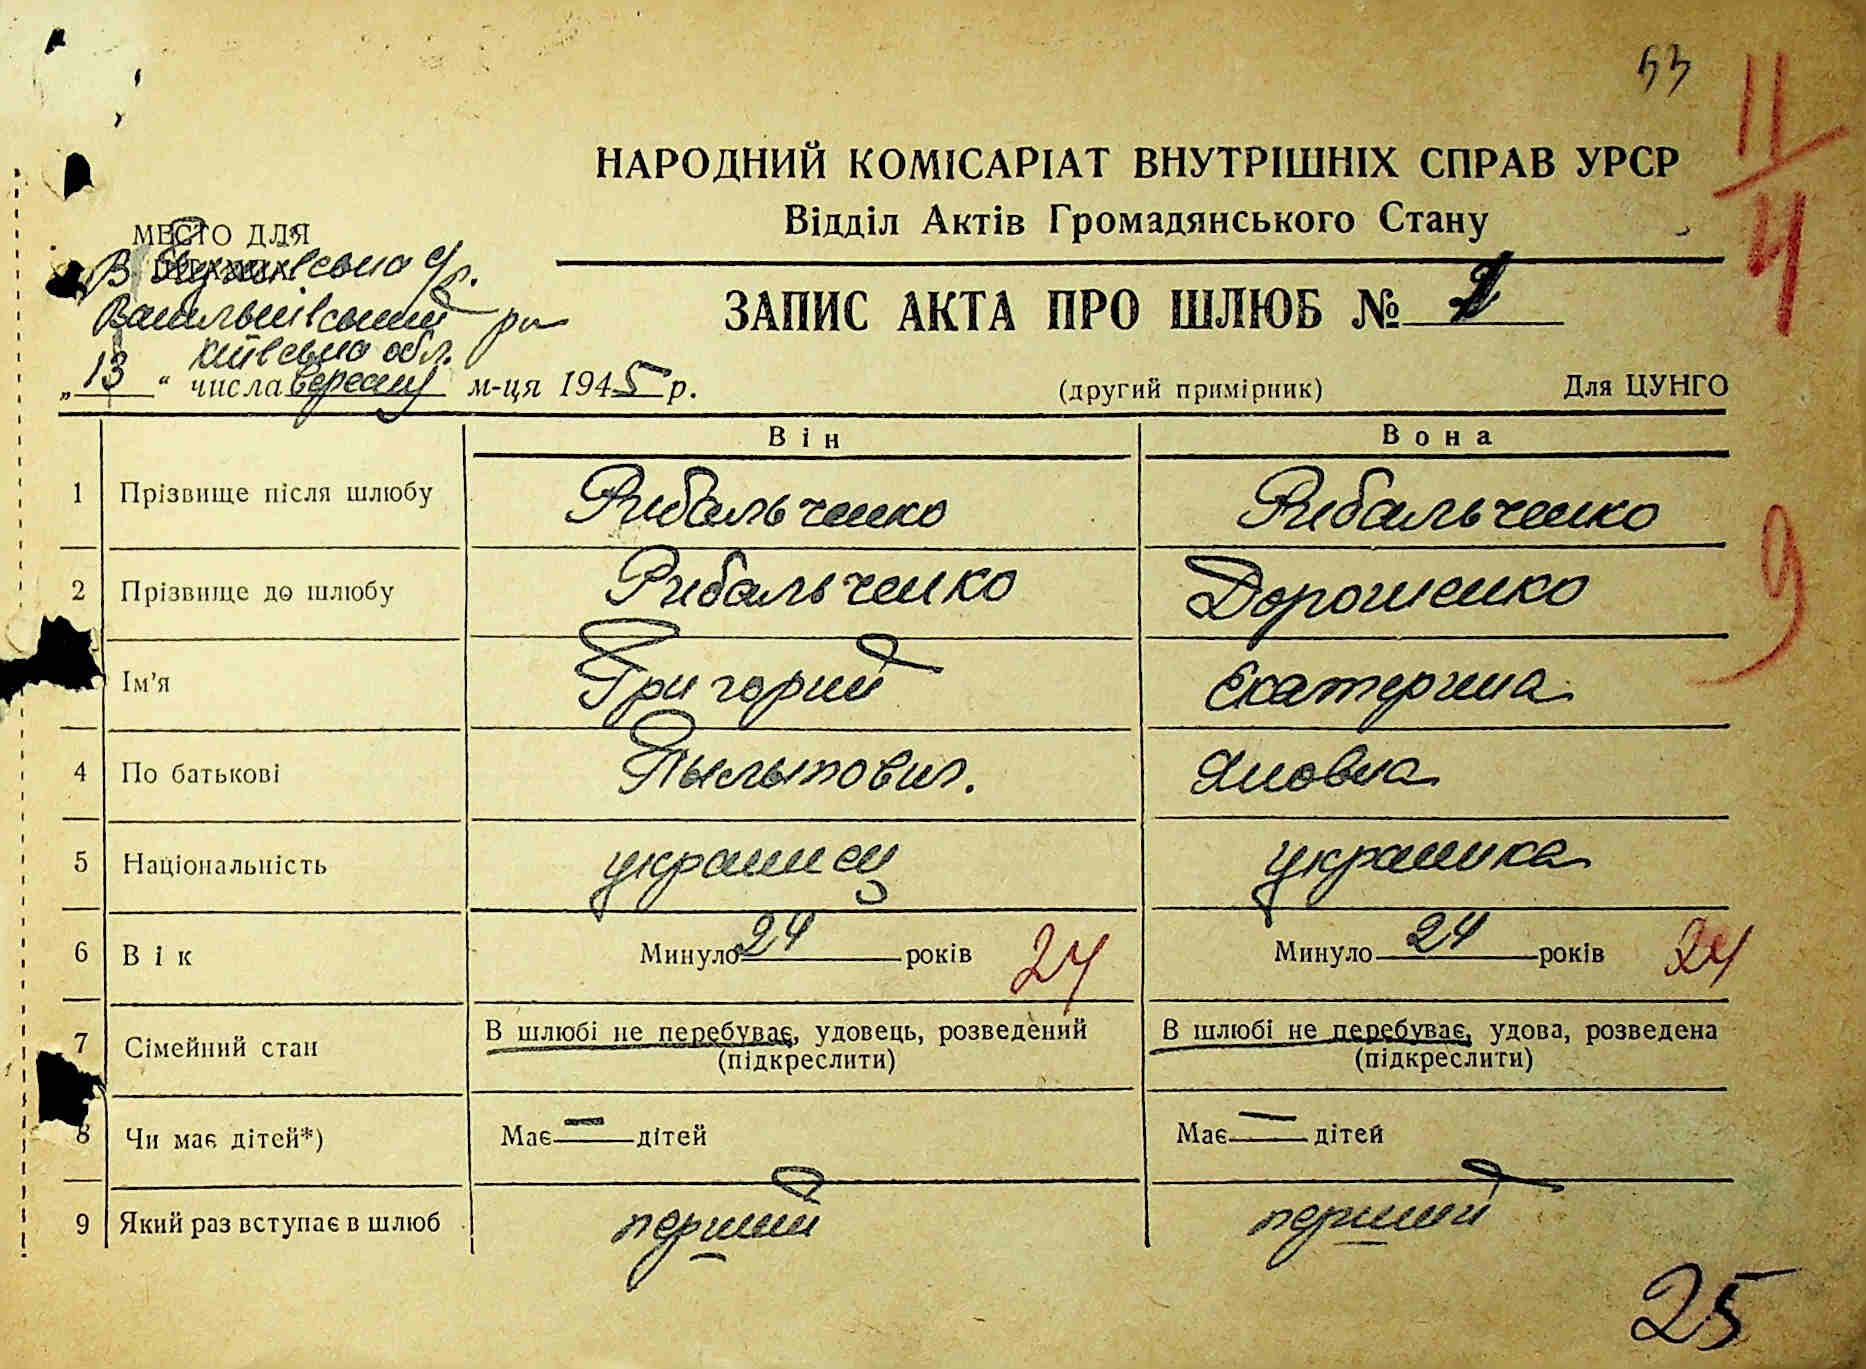 53
11/4
НАРОДНИЙ КОМІСАРІАТ ВНУТРІШНІХ СПРАВ УРСР
Відділ Актів Громадянського Стану
МЕСТО ДЛЯ
В
Васильківський р-н
Київська обл.
ЗАПИС АКТА ПРО ШЛЮБ №
„13“ числа вересня м-ця 1945 р.
(другий примірник) Для ЦУНГО
Він Вона
1 Прізвище після шлюбу Рибальченко Рибальченко
9
2 Прізвище до шлюбу Рибальченко Дорошенко
Ім'я Григорий Екатерина
4 По батькові Яковна
5 Національність украинец украинка
6 Вік Минуло 24 років 24 Минуло 24 років 24
7 Сімейний стан В шлюбі не перебуває, удовець, розведений В шлюбі не перебуває, удова, розведена
(підкреслити) (підкреслити)
8 Чи має дітей*) Має — дітей Має — дітей
9 Який раз вступає в шлюб перший перший
25